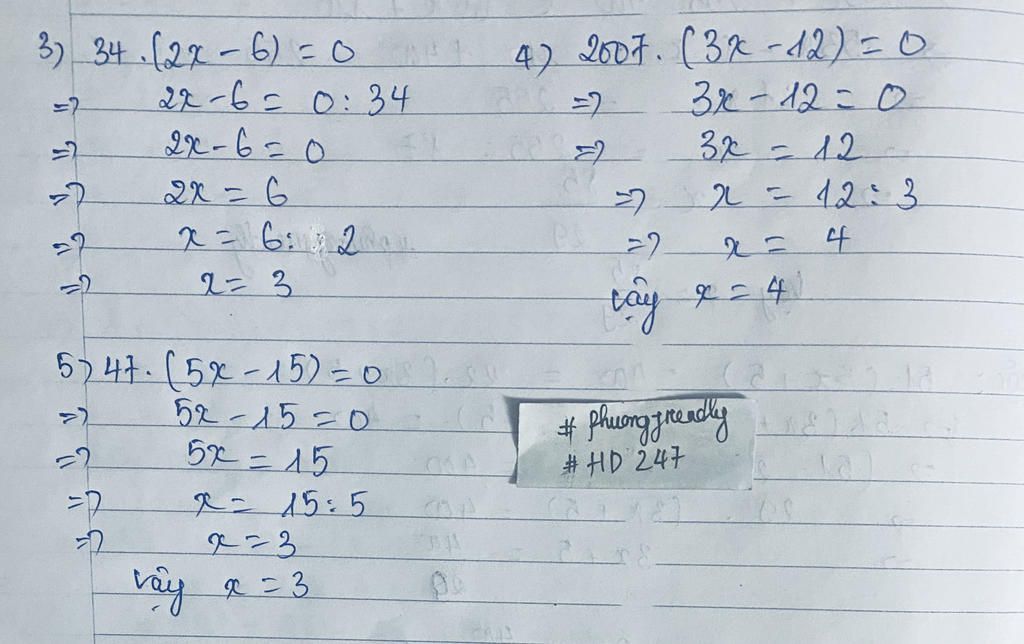 3) 34.(2x - 6) = 0
=> 2x - 6 = 0 : 34
=> 2x - 6 = 0
=> 2x = 6
=> x = 6 : 2
=> x = 3
4) 2007.(3x - 12) = 0
=> 3x - 12 = 0
=> 3x = 12
=> x = 12 : 3
=> x = 4
Vậy x = 4
5) 47.(5x - 15) = 0
=> 5x - 15 = 0
=> 5x = 15
=> x = 15 : 5
=> x = 3
Vậy x = 3
# HD 247